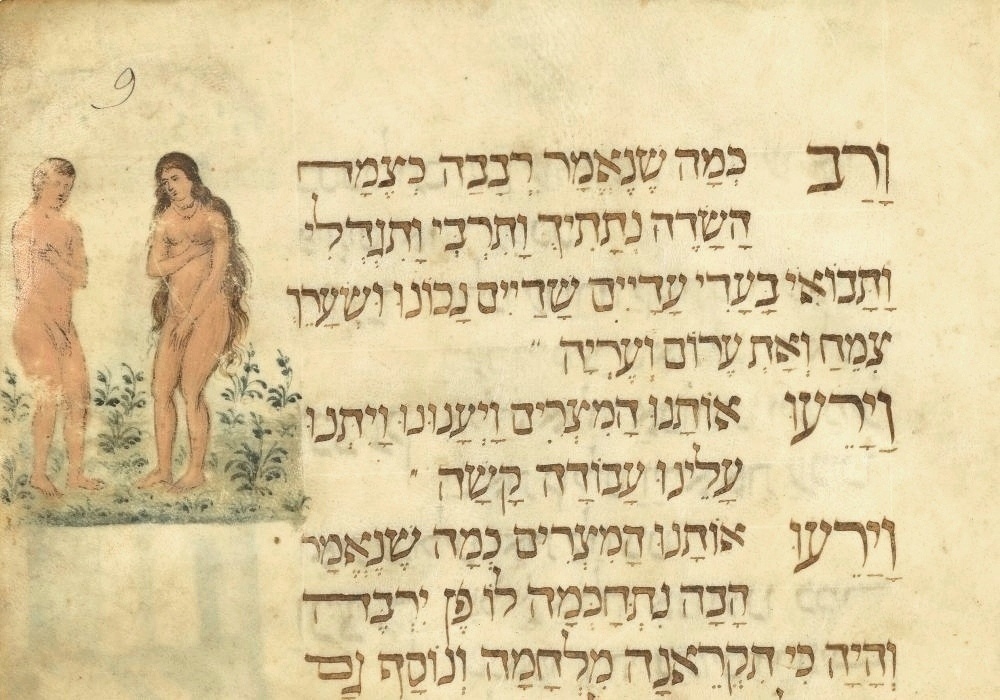 9
וָרַב כְּמָה שֶׁנֶּאֱמַר רְבָבָה כְּצֶמַח
הַשָּׂדֶה נְתַתִּיךְ וַתִּרְבִּי וַתִּגְדְּלִי
וַתָּבוֹאִי בַּעֲדִי עֲדָיִים שָׁדַיִים נָכוֹנוּ וּשְׂעָרֵךְ
צִמֵּחַ וְאַתְּ עֵרוֹם וְעֶרְיָה
וַיָּרֵעוּ אוֹתָנוּ הַמִּצְרִים וַיְעַנּוּנוּ וַיִּתְּנוּ
עָלֵינוּ עֲבוֹדָה קָשָׁה
וַיָּרֵעוּ אוֹתָנוּ הַמִּצְרִים כְּמָה שֶׁנֶּאֱמַר
הָבָה נִתְחַכְּמָה לוֹ פֶּן יִרְבֶּה
וְהָיָה כִּי תִקְרֶאנָה מִלְחָמָה וְנוֹסַף גַּם